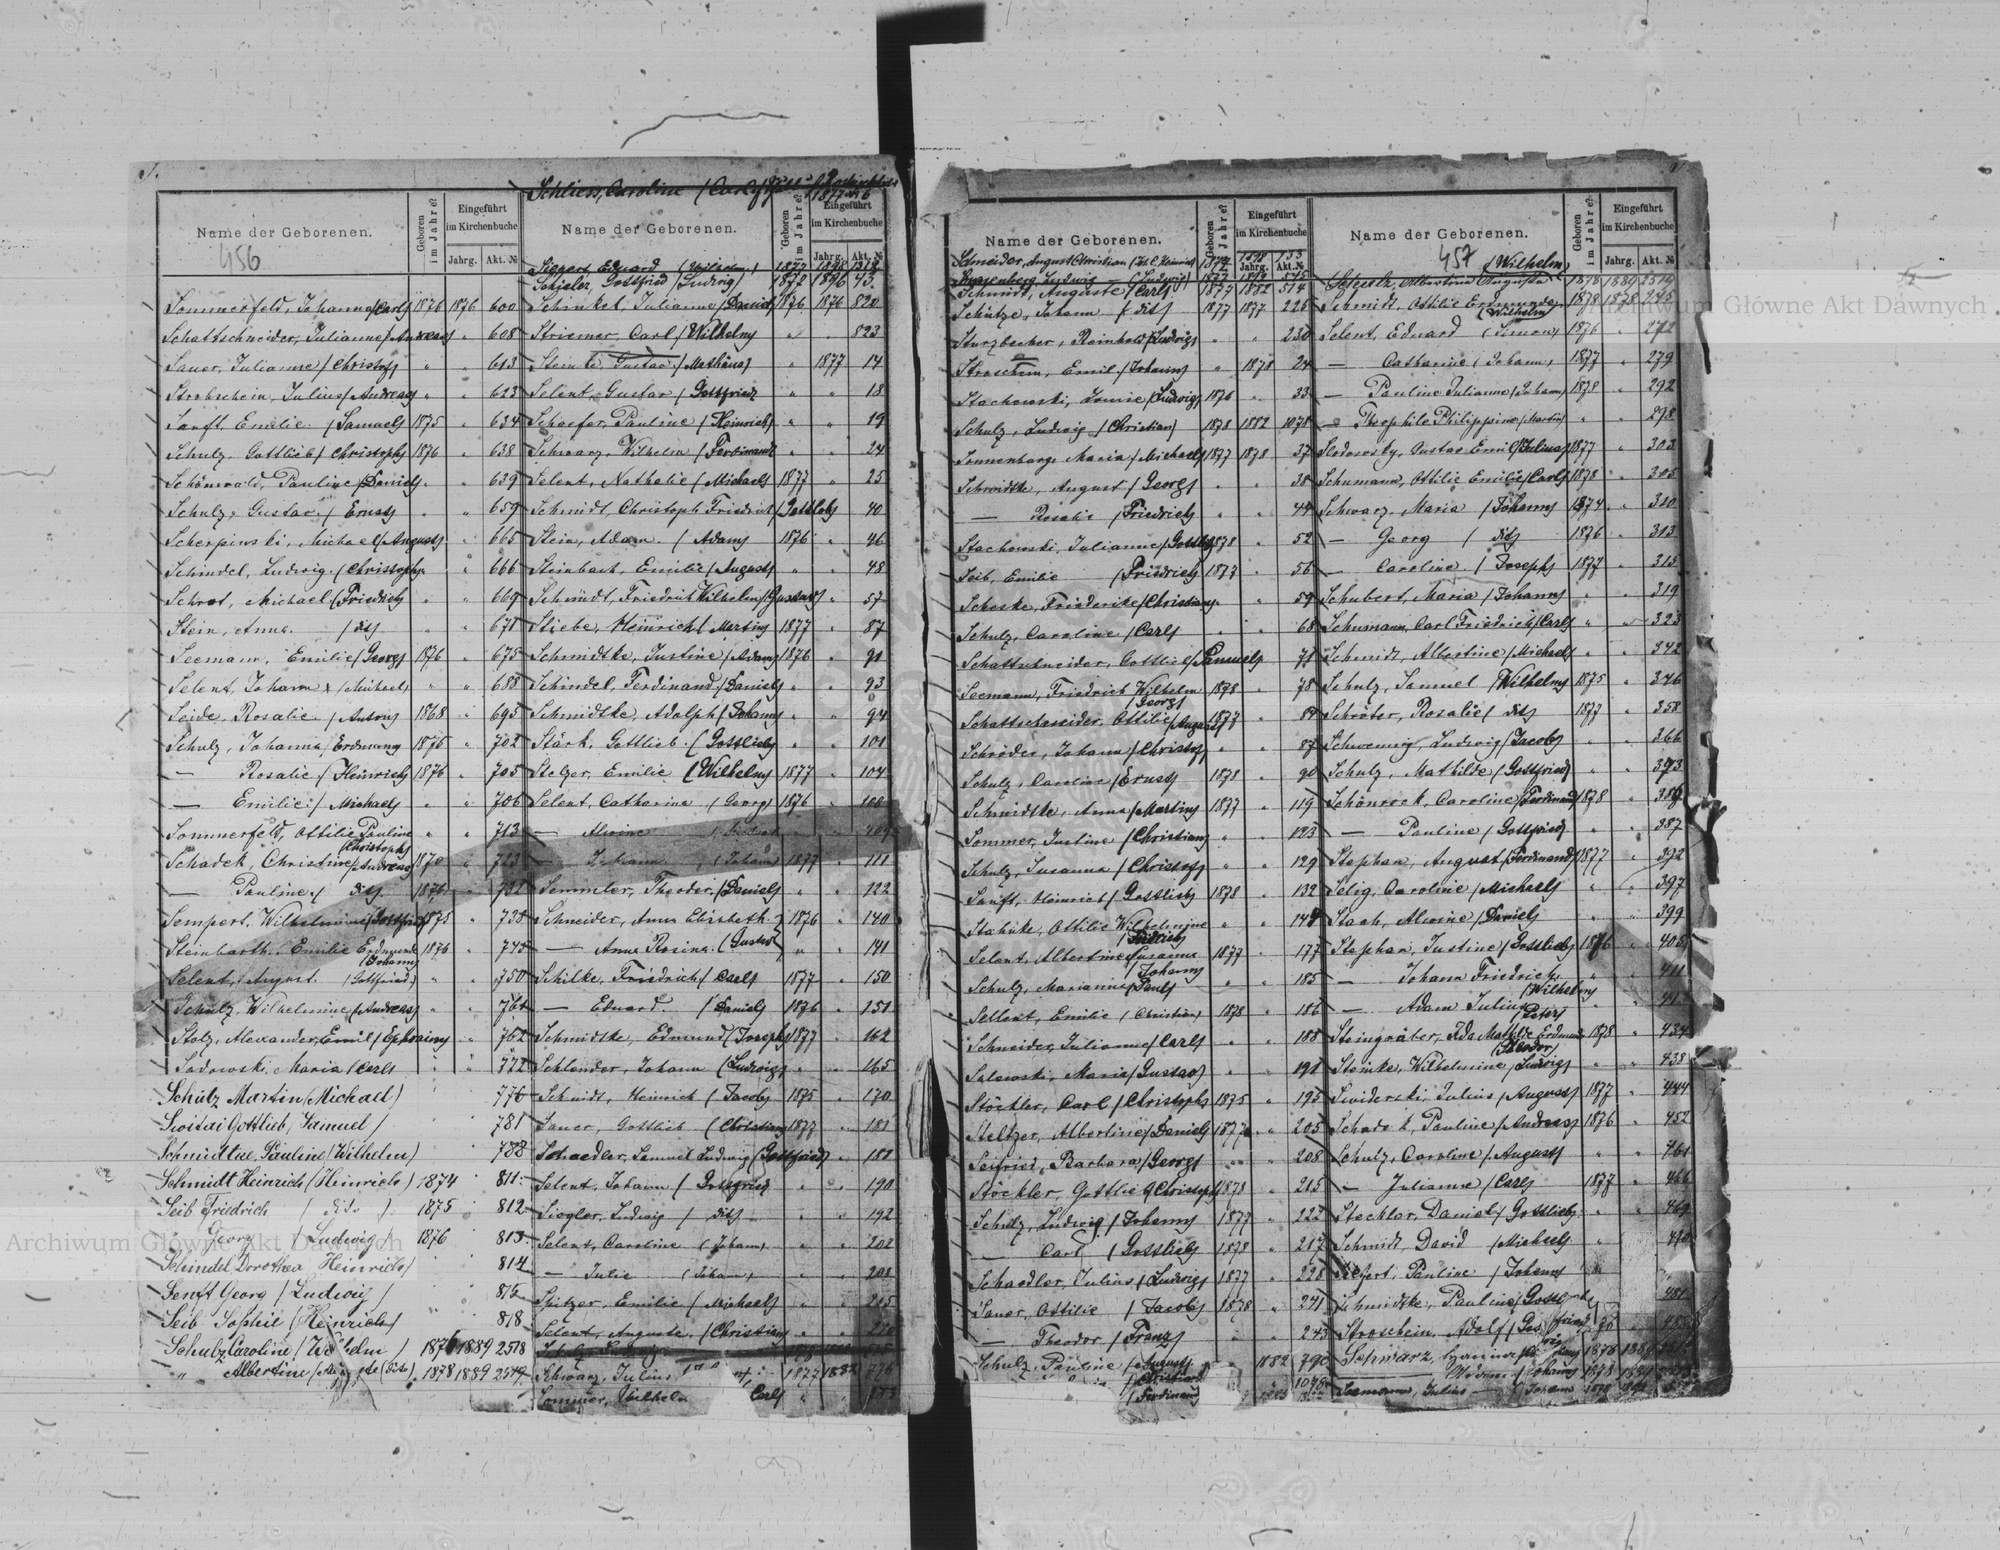 S.
Schliess, Caroline (Carl)
Name der Geborenen.
456
Geboren im Jahre?
Eingeführt im Kirchenbuche
Jahrg. Akt. №
Sommerfeld, Johanna (Carl) 1876 1876 600
Schattschneider, Julianne (Andreas) " " 608
Sauer, Julianne (Christof) " " 613
Strohschein, Julius (Andreas) " " 623
Sanft, Emilie (Samuel) 1875 " 634
Schulz, Gottlieb (Christoph) 1876 " 638
Schönwald, Pauline (Daniel) " " 639
Schulz, Gustav (Ernst) " " 659
Scherpinski, Michael (August) " " 665
Schindel, Ludwig (Christoph) " " 666
Schrot, Michael (Friedrich) " " 669
Stein, Anna (dit) " " 671
Seemann, Emilie (Georg) 1876 " 675
Selent, Johann (Michael) " " 688
Seide, Rosalie (Anton) 1868 " 695
Schulz, Johanna (Erdmann) 1876 " 702
— Rosalie (Heinrich) 1876 " 705
— Emilie (Michael) " " 706
Sommerfeld, Ottilie Pauline (Christoph) " " 713
Schadek, Christine (Andreas) 1870 "
— Pauline (dit) 1876 "
Sempert, Wilhelmine (Gottfried) 1875 " 738
Steinbarth, Emilie Erdmunde (Johann) 1876 "
Selent, August (Gottfried) " " 750
Schulz, Wilhelmine (Andreas) " " 761
Stolz, Alexander Emil (Ephraim) " " 762
Sadowski, Maria (Carl) " " 772
Schulz Martin (Michael) 776
Gottlieb, Samuel 781
Schmidtke, Pauline (Wilhelm) 788
Schmidt Heinrich (Heinrich) 1874 811
Seib Friedrich (dito) 1875 812
— Georg (Ludwig) 1876 813
Schindel Dorothea Heinrich 814
Senft Georg (Ludwig) 815
Seib Sophie (Heinrich) 818
Schulz Caroline (Wilhelm) 1876 1889 2518
" Albertine 1878 1889 2519
Name der Geborenen.
Geboren im Jahre?
Eingeführt im Kirchenbuche
Jahrg. Akt. №
Siegert, Eduard (Wilhelm) 1877
Schieler, Gottfried (Ludwig) 1872 1896 43
Schinkel, Julianne (Daniel) 1876 1876 820
Striemer, Carl (Wilhelm) " " 823
Steinke, Gustav (Mathäus) " 1877 14
Selent, Gustav (Gottfried) " " 18
Schaefer, Pauline (Heinrich) " " 19
Schwarz, Wilhelm (Ferdinand) " " 24
Selent, Nathalie (Michael) 1877 " 25
Schmidt, Christoph Friedrich (Gottlob) " 40
Stein, Adam (Adam) 1876 " 46
Steinbach, Emilie (August) " " 48
Schmidt, Friedrich Wilhelm (Gustav) " 57
Stiebe, Heinrich (Martin) 1877 " 87
Schmidtke, Justine (Adam) 1876 " 91
Schindel, Ferdinand (Daniel) " " 93
Schmidtke, Adolph (Johann) " " 94
Stärk, Gottlieb (Gottlieb) " " 101
Stelzer, Emilie (Wilhelm) 1877 " 104
Selent, Catharina (Georg) 1876 " 108
— Alwine " " 109
— Johann (Johann) 1877 " 111
Semmler, Theodor (Daniel) " " 122
Schneider, Anna Elisabeth 1876 " 140
— Anna Rosina (Gustav) " " 141
Schilke, Friedrich (Carl) 1877 " 150
— Eduard (Daniel) 1876 " 151
Schmidtke, Edmund (Joseph) 1877 " 162
Schlender, Johann (Ludwig) " " 165
Schmidt, Heinrich (Jacob) 1875 " 170
Sauer, Gottlieb (Christian) 1877 " 181
Schaedler, Samuel Ludwig (Gottfried) " 188
Selent, Johann (Gottfried) " " 190
Siegler, Ludwig (dit) " " 192
Selent, Caroline (Johann) " " 202
— Julie (Johann) " " 208
Spitzer, Emilie (Michael) " " 215
Selent, Auguste (Christian) " "
Schwarz, Julius 1877 1882 776
Sommer, Wilhelm Carl
Name der Geborenen.
Geboren im Jahre?
Eingeführt im Kirchenbuche
Jahrg. Akt. №
Schneider, August Christian
Schmidt, Auguste (Carl) 1877 1882 514
Schütze, Johann (dit) 1877 1877 226
Sturzbecher, Reinhold (Ludwig) " " 230
Stroschein, Emil (Johann) " 1878 24
Stachowski, Louise (Ludwig) 1876 " 33
Schulz, Ludwig (Christian) 1878 1882 1078
Sonnenberg, Maria (Michael) 1877 1878 37
Schmidtke, August (Georg) " " 38
— Rosalie (Friedrich) " " 44
Stachowski, Julianne (Gottlieb) 1878 " 52
Seib, Emilie (Friedrich) 1877 " 56
Scheske, Friederike (Christian) " " 59
Schulz, Caroline (Carl) " " 68
Schattschneider, Gottlieb (Samuel) " 71
Seemann, Friedrich Wilhelm (Georg) 1878 " 78
Schattschneider, Ottilie (August) 1877 " 84
Schröder, Johann (Christof) " " 87
Schulz, Caroline (Ernst) 1878 " 90
Schmidtke, Anna (Martin) 1877 " 119
Sommer, Justine (Christian) " " 123
Schulz, Susanna (Christof) " " 129
Sanft, Heinrich (Gottlieb) 1878 " 132
Stahnke, Ottilie Wilhelmine (Friedrich) " " 148
Selent, Albertine Susanna (Johann) 1877 " 177
Schulz, Marianna (Paul) " " 185
Sellent, Emilie (Christian) 1878 " 186
Schneider, Julianne (Carl) " " 188
Salewski, Maria (Gustav) " " 191
Stöckler, Carl (Christoph) 1875 " 195
Steltzer, Albertine (Daniel) 1877 " 205
Seifried, Barbara (Georg) " " 208
Stöckler, Gottlieb (Christoph) 1878 " 215
Schulz, Ludwig (Johann) 1877 "
— Carl (Gottlieb) 1878 " 217
Schaedler, Julius (Ludwig) 1877 " 228
Sauer, Ottilie (Jacob) 1878 " 241
— Theodor (Franz) " " 243
Schulz, Pauline (August) 1882 790
(Christian)
(Ferdinand)
Name der Geborenen.
457
Geboren im Jahre?
Eingeführt im Kirchenbuche
Jahrg. Akt. №
(Wilhelm)
Schulz, Albertine Auguste 1878 1889 2519
Schmidt, Ottilie Erdmunde (Wilhelm) 1878 1878 245
Selent, Eduard (Simon) 1876 " 272
— Catharine (Johann) 1877 " 279
— Pauline Julianne (Johann) 1878 " 292
— Theophile Philippine (Martin) " " 298
Gustav Emil (Julius) 1877 " 302
Schumann, Ottilie Emilie (Carl) 1878 " 305
Schwarz, Maria (Johann) 1874 " 310
— Georg (dit) 1876 " 313
— Caroline (Joseph) 1877 " 315
Schubert, Maria (Johann) " " 319
Schumann, Carl Friedrich (Carl) " " 323
Schmidt, Albertine (Michael) " " 342
Schulz, Samuel (Wilhelm) 1875 " 346
Schröter, Rosalie (dit) 1877 " 358
Schwenning, Ludwig (Jacob) " " 366
Schulz, Mathilde (Gottfried) " " 373
Schönrock, Caroline (Ferdinand) 1878 "
— Pauline (Gottfried) " " 387
Stephan, August (Ferdinand) 1877 " 392
Selig, Caroline (Michael) " " 397
Staah, Alwine (Daniel) " " 399
Stephan, Justine (Gottlieb) 1876 " 405
— Johann Friedrich (Wilhelm) " " 411
— Adam Julius (Peter) " "
Steingräber, Ida Mathilde Erdmunde (Theodor) 1878 " 434
Steinke, Wilhelmine (Ludwig) " " 438
Swiderski, Julius (August) 1877 " 444
Schadek, Pauline (Andreas) 1876 " 452
Schulz, Caroline (August) " " 461
— Julianna (Carl) 1877 " 466
Steckler, Daniel (Gottlieb) " " 469
Schmidt, David (Michael) " " 470
Siefert, Pauline (Johann) "
Schmidtke, Pauline 481
Stroschein, Adolf
Schwarz, 1878
Adam (Johann) 1878
Seemann, Julius — (Johann
Archiwum Główne Akt Dawnych
Archiwum Główne Akt Dawnych